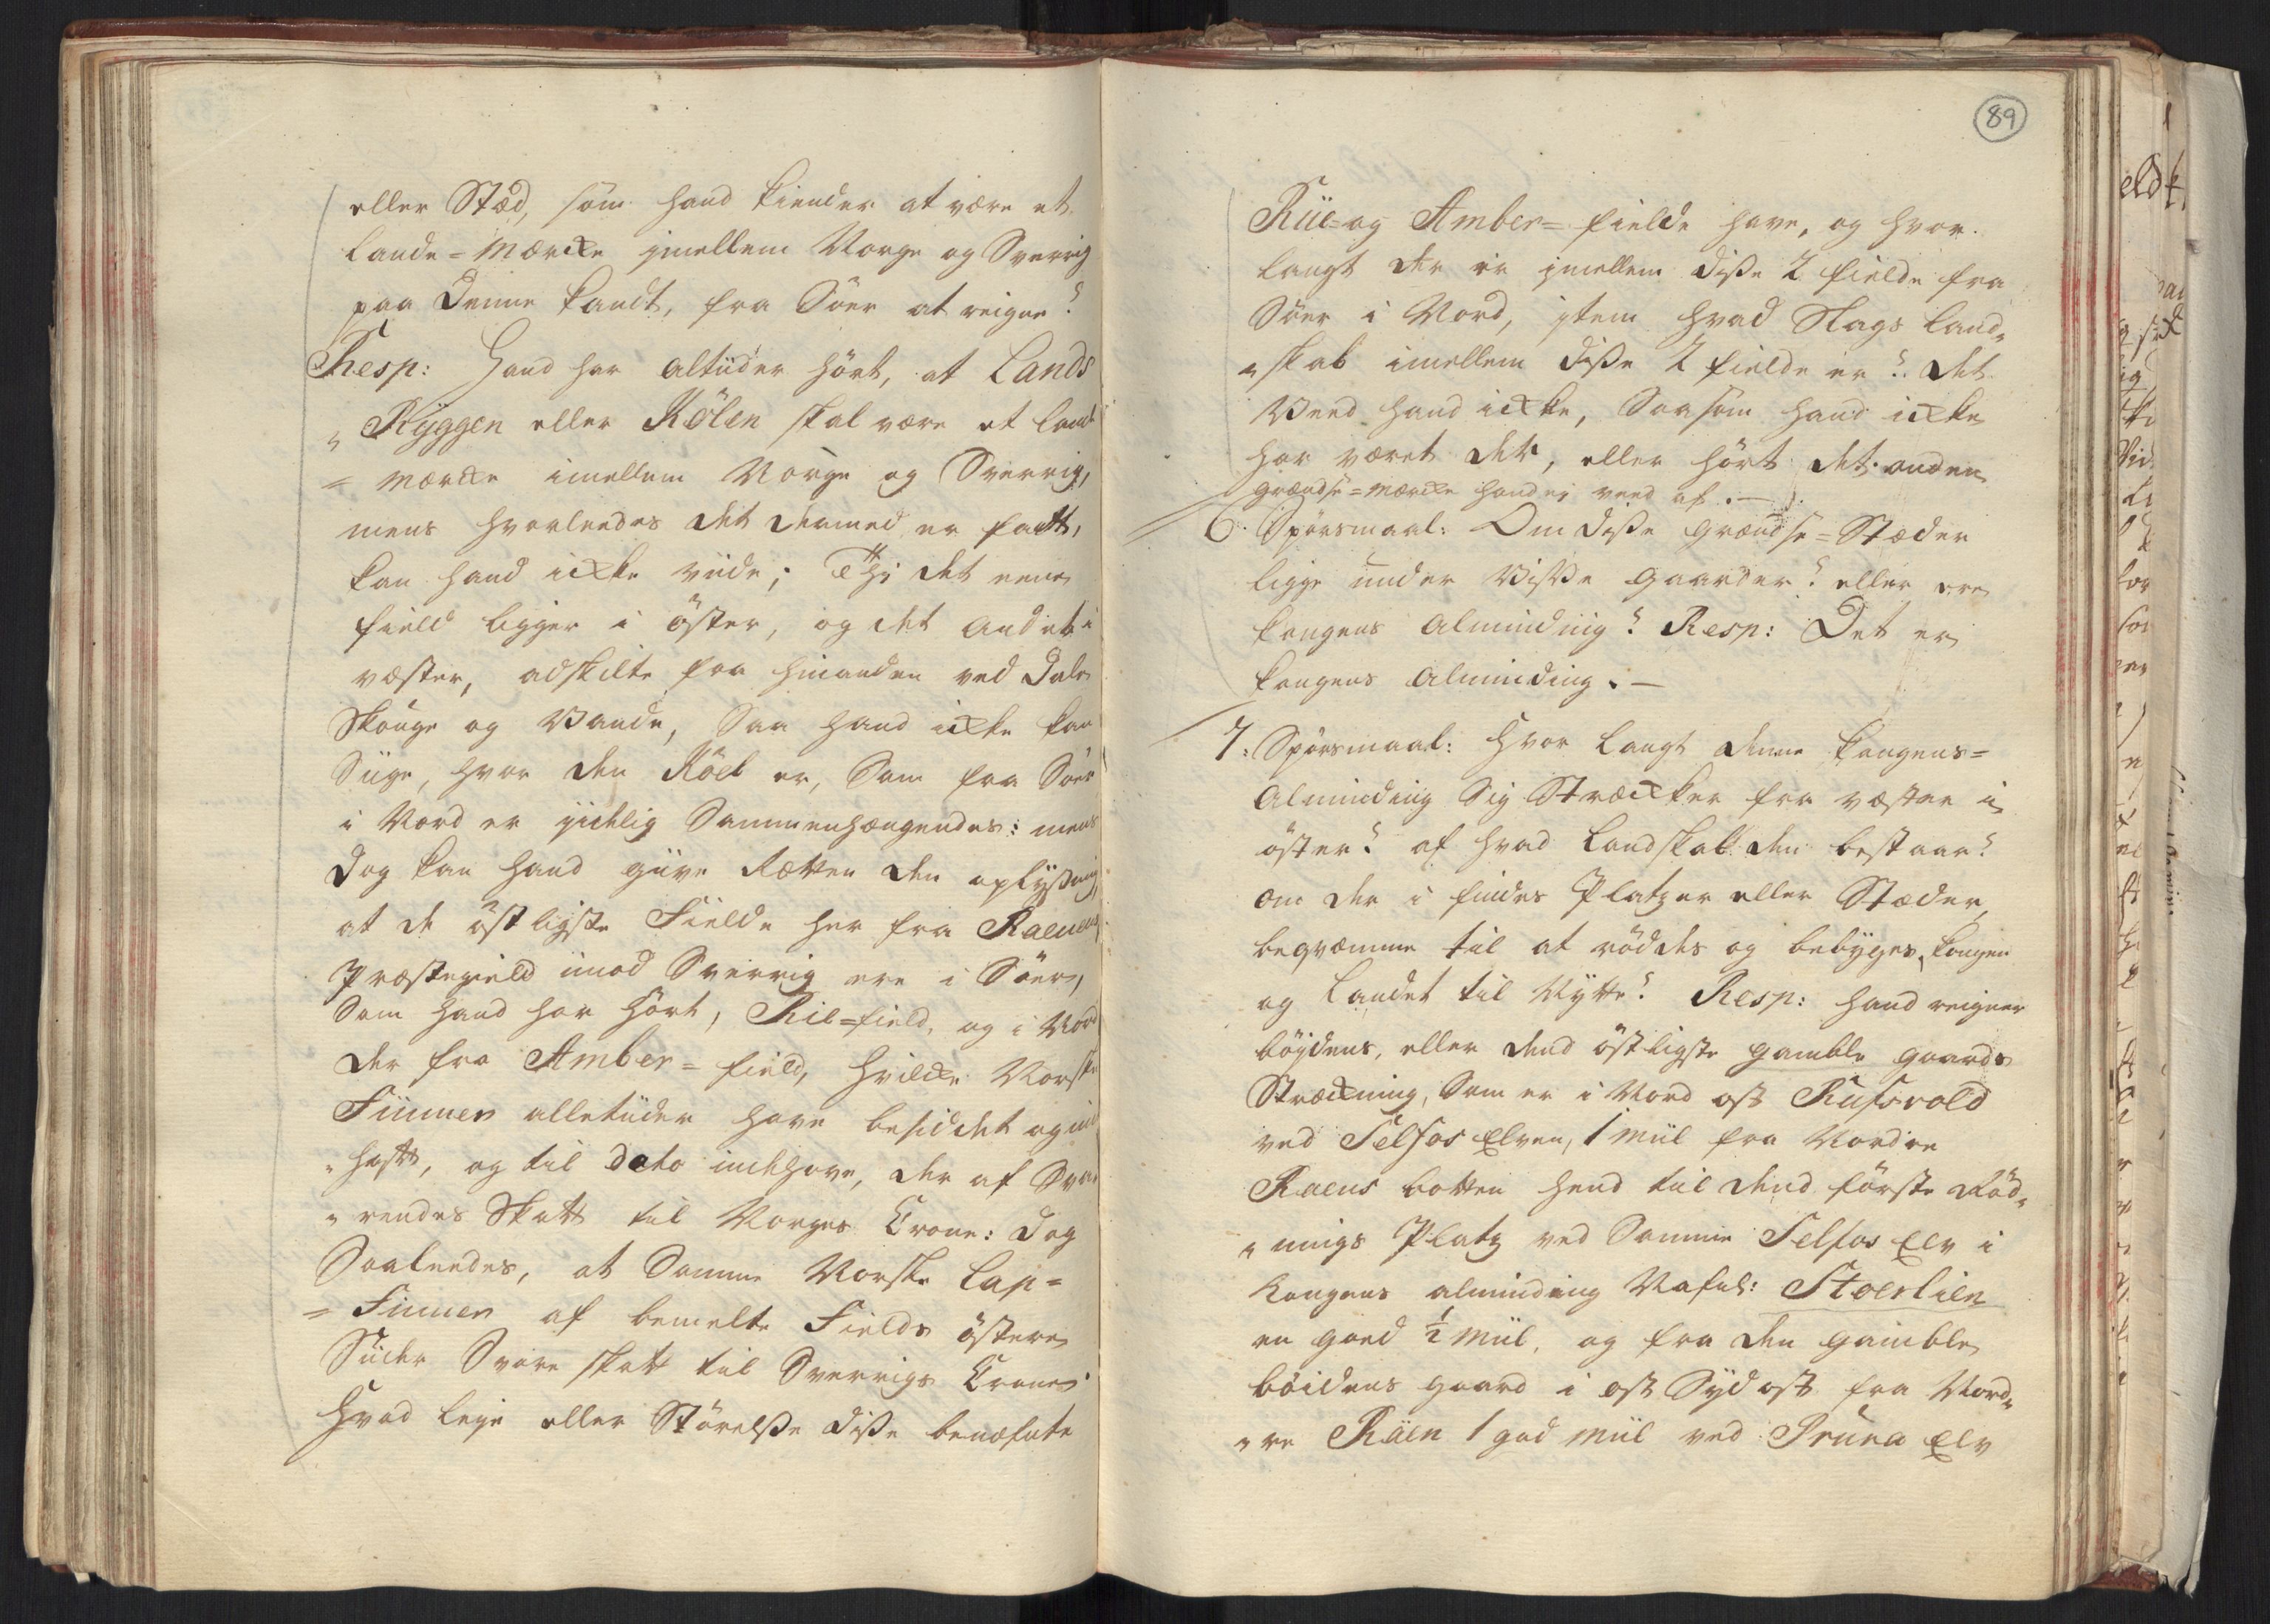 eller Stæd, som hand kiender at være et
Lande=Mærcke imellem Norge og Sverrig
paa denne Kandt, fra Söer at reigne?
Resp: Hand har altiider hört, at Lands
„Ryggen eller Kölen skal være et land
=mærcke imellem Norge og Sverrig,
mens hvorleedes det dermed er fatt,
kan hand icke viide; Thi det eene
field ligger i öster, og det andet i
væster, adskilte fra hinanden ved Dale
Skouge og Vande, Saa hand icke kan
Siige, hvor den Köel er, Som fra Söer
i Nord er ideelig Sammenhængendes: mens
Dog kan hand giive Rætten den oplysning,
at de östligste Fielde her fra Raenens
Præstegield imod Sverrig ere i Söer,
Som hand har hört, Riie=field, og i Nord
der fra Amber=field, hvilcke Norske
Finner alletiider have besiddet og ind
„hafft, og til dato indehave, der af Sva
„rendes Skatt til Norges Crone: dog
Saaleedes, at Samme Norske Lap=
=Finner af bemelte Fields östere
Siider Svare skatt til Sverrigs Crone
Hvad leye eller Störelsse disse benæfnte
89
Riie= og Amber=fielde have, og hvor
langt der er imellem disse 2 fielde fra
Söer i Nord, item hvad Slags Land„
„skab imellem disse 2 fielde er? det
Veed hand icke, Saasom hand icke
har været der, eller hört det. anden
grændse=mærcke hand ej veed af.—
6. Spörsmaal: Om disse grændse=Stæder
ligge under Visse gaarder? eller ere
Kongens Alminding? Resp: Det er
Kongens Alminding.—
7: Spörsmaal: Hvor langt denne Kongens=
Alminding Sig Stræcker fra væster i
öster? af hvad Landskab den bestaar?
om der i findes Platzer eller Stæder,
beqvæmme til at röddes og bebyges, Kongen
og Landet til Nytte? Resp: hand reigner
böydens, eller dend östligste gamble gaards
Strækning, Som er i Nord ost Rufsvold
ved Selfos Elven, 1 miil fra Nordre
Raens botten hend til dend förste Röd„
„nings Platz ved Samme Selfos Elv i
Kongens alminding Nafnl: Stoerlien
en goed ½ Miil, og fra den gamble
böidens gaard i ost Sydost fra Nord„
„re Räen 1 god miil ved Pruna Elv